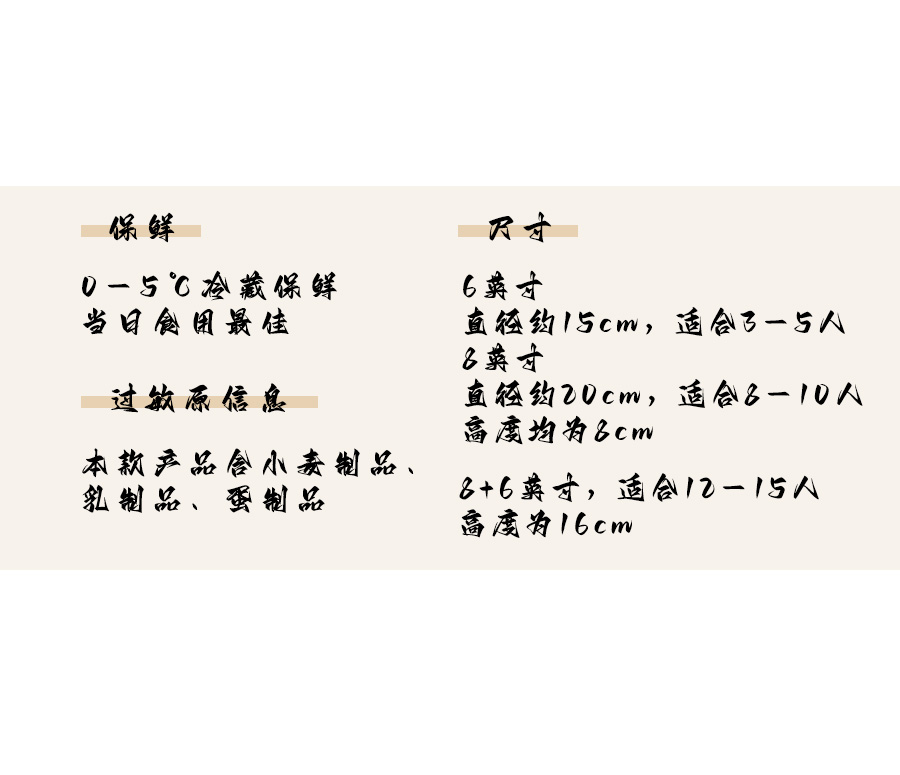 保鲜
0—5℃冷藏保鲜
当日食用最佳
过敏原信息
本款产品含小麦制品、
乳制品、蛋制品
尺寸
6英寸
直径约15cm，适合3—5人
8英寸
直径约20cm，适合8—10人
高度均为8cm
8+6英寸，适合12—15人
高度为16cm